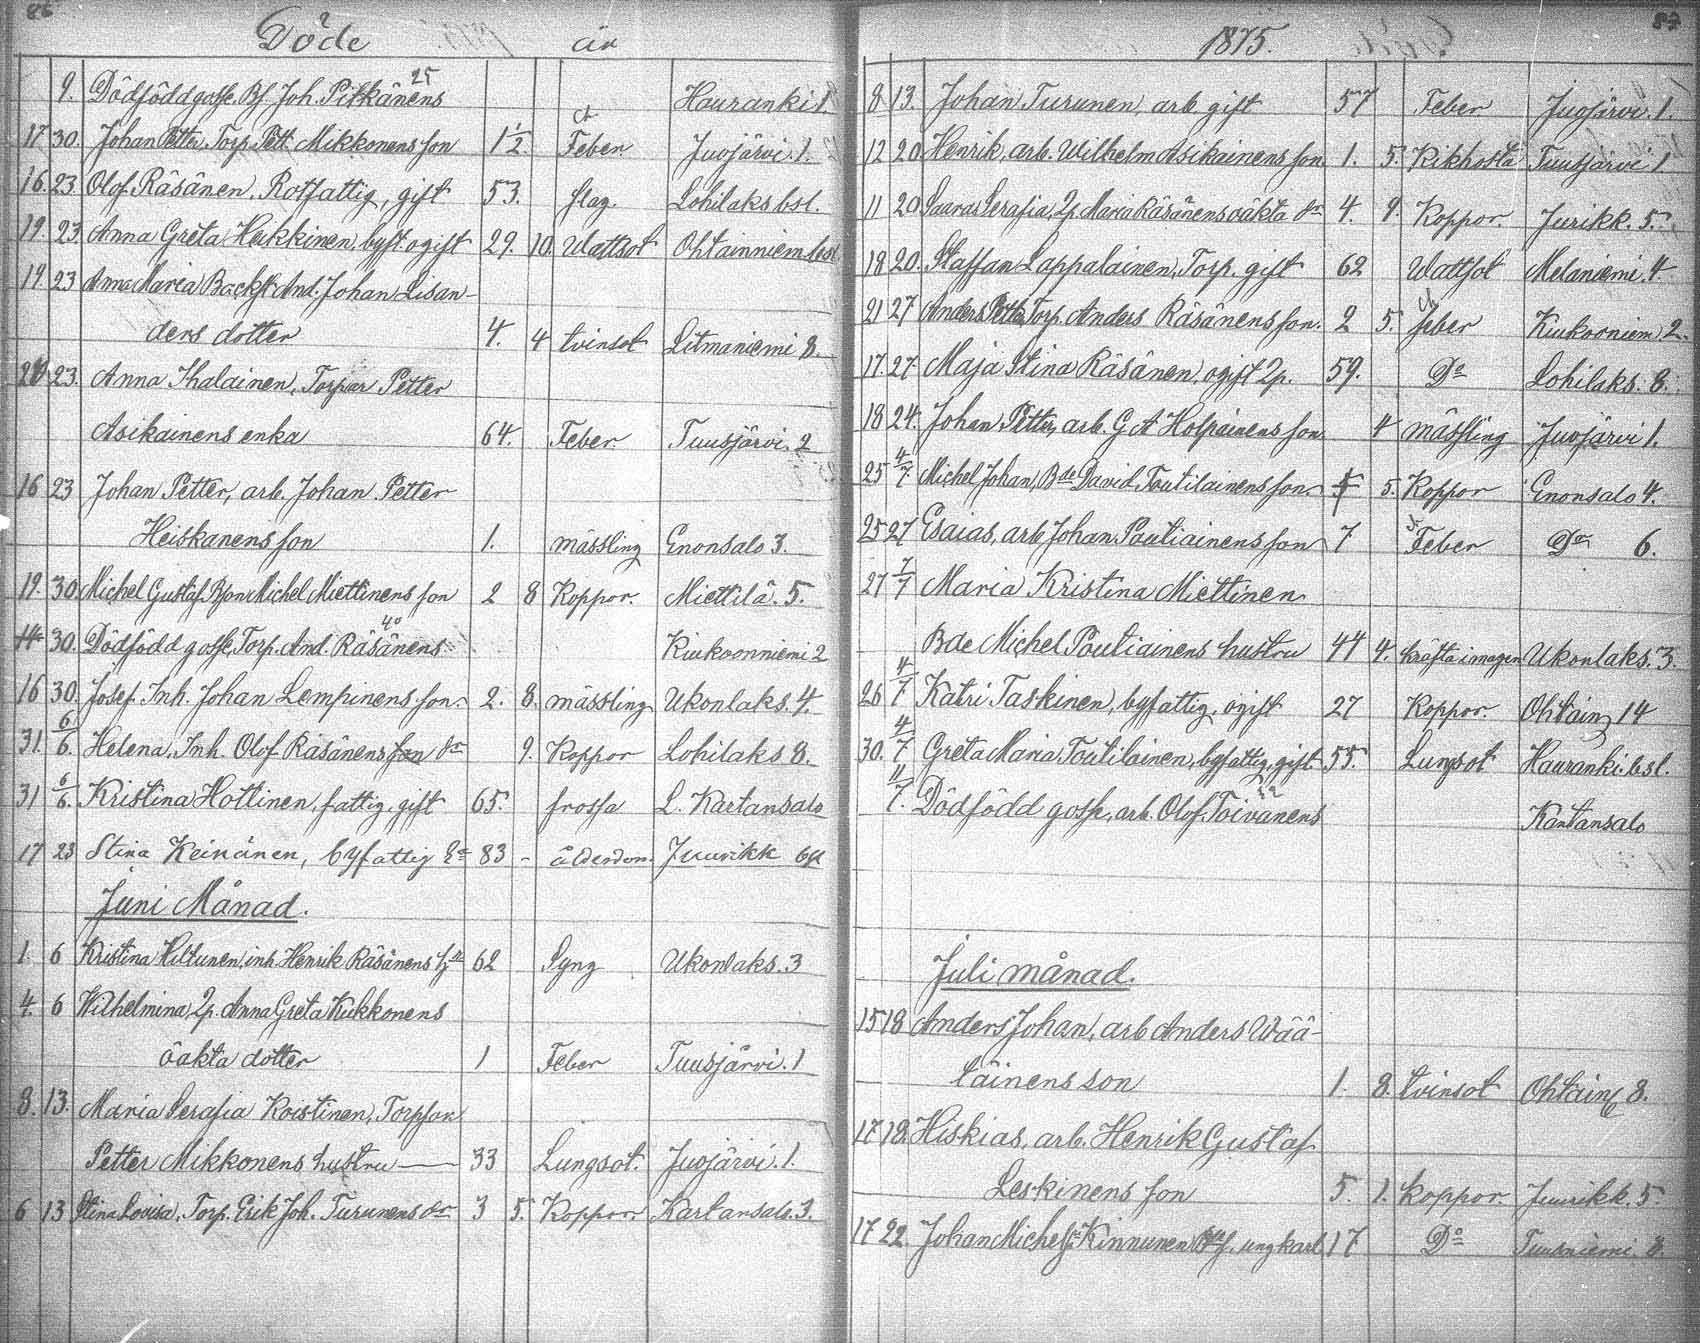 86
Döde år
9. Dödfödd gosse, Bf. Joh. Pitkänens 25 Hauranki 1.
17 30. Johan Petter, Torp. Pett. Mikkonens son 1 1/2 Feber. Juojärvi. 1.
16. 23. Olof Räsänen, Rotfattig, gift 53. slag. Lohilaks bsl.
19. 23. Anna Greta Heikkinen, byft. ogift 29. 10. Wattsot Ohtainniem bsl.
19. 23 Anna Maria Backst. And. Johan Lisan-
ders dotter 4. 4 tvinsot Litmaniemi 8.
23. Anna Ihalainen, Torpar Petter
Asikainens enka 64. Feber Tuusjärvi. 2
16 23 Johan Petter, arb. Johan Petter
Heiskanens son 1. mässling Enonsalo 3.
19. 30. Michel Gustaf, Bson Michel Miettinens son 2 8 Koppor. Miettilä. 5.
14 30. Dödfödd gosse, Torp. And. Räsänens 40 Kiukoonniemi 2
16 30. Josef, Inh. Johan Lempinens son. 2. 8. mässling Ukonlaks. 4.
31. 6/6. Helena, Inh. Olof Räsänens son dr 9. Koppor Lohilaks 8.
31 6/6. Kristina Hottinen, fattig, gift 65. frossa L. Kartansalo
17 23 Stina Keinänen, byfattig Ea 83 - ålderdom. Juurikk 6
Juni Månad.
1. 6 Kristina Hiltunen, inh. Henrik Räsänens h 62 Styng Ukonlaks. 3
4. 6 Wilhelmina, 2p. Anna Greta Kukkonens
oäkta dotter 1 Feber Tuusjärvi. 1
8. 13. Maria Serafia Koistinen, Torpson
Petter Mikkonens hustru 33 Lungsot. Juojärvi. 1.
6 13 Stina Lovisa, Torp. Erik Joh. Turunens dr 3 5. Koppor. Kartansalo. 3.
87
1875.
8 13. Johan Turunen, arb. gift 57 Feber Juojärvi. 1.
12 20 Henrik, arb. Wilhelm Asikainens son 1. 5. Kikhosta Tuusjärvi 1.
11 20. Saara Serafia, 2p. Maria Räsänens oäkta dr 4. 9. Koppor. Jurikk. 5.
18 20. Staffan Lappalainen, Torp. gift 62 Wattsot Melaniemi. 4
21 27 Anders Petter, Torp. Anders Räsänens son. 2 5. feber Kiukooniem 2.
17 27. Maja Stina Räsänen, ogift 2p. 59. Do Lohilaks. 8.
18 24. Johan Petter, arb. G A Holpainens son 4 mässling Juojärvi 1.
25 4/7 Michel Johan, Bde David Toutilainens son. 5. Koppor Enonsalo 4.
25 27 Esaias, arb Johan Poutiainens son 7 Feber Do 6.
27 7/7 Maria Kristina Miettinen
Bde Michel Poutiainens hustru 44 4. kräfta i magen Ukonlaks. 3.
26 4/7 Katri Taskinen, byfattig, ogift 27 Koppor. Ohtain 14
30. 4/7 Greta Maria Toutilainen, byfattig, gift 55 Lungsot Hauranki bsl.
11/7. Dödfödd gosse, arb. Olof Toivanens Kartansalo
Juli månad.
15 18 Anders Johan, arb Anders Wää-
täinens son 1. 8. tvinsot Ohtain 8.
17 18. Hiskias, arb. Henrik Gustaf
Leskinens son 5. 1. koppor. Juurikk. 5
17 22. Johan Michels Kinnunen ungkarl 17 Do Tuusniemi 8